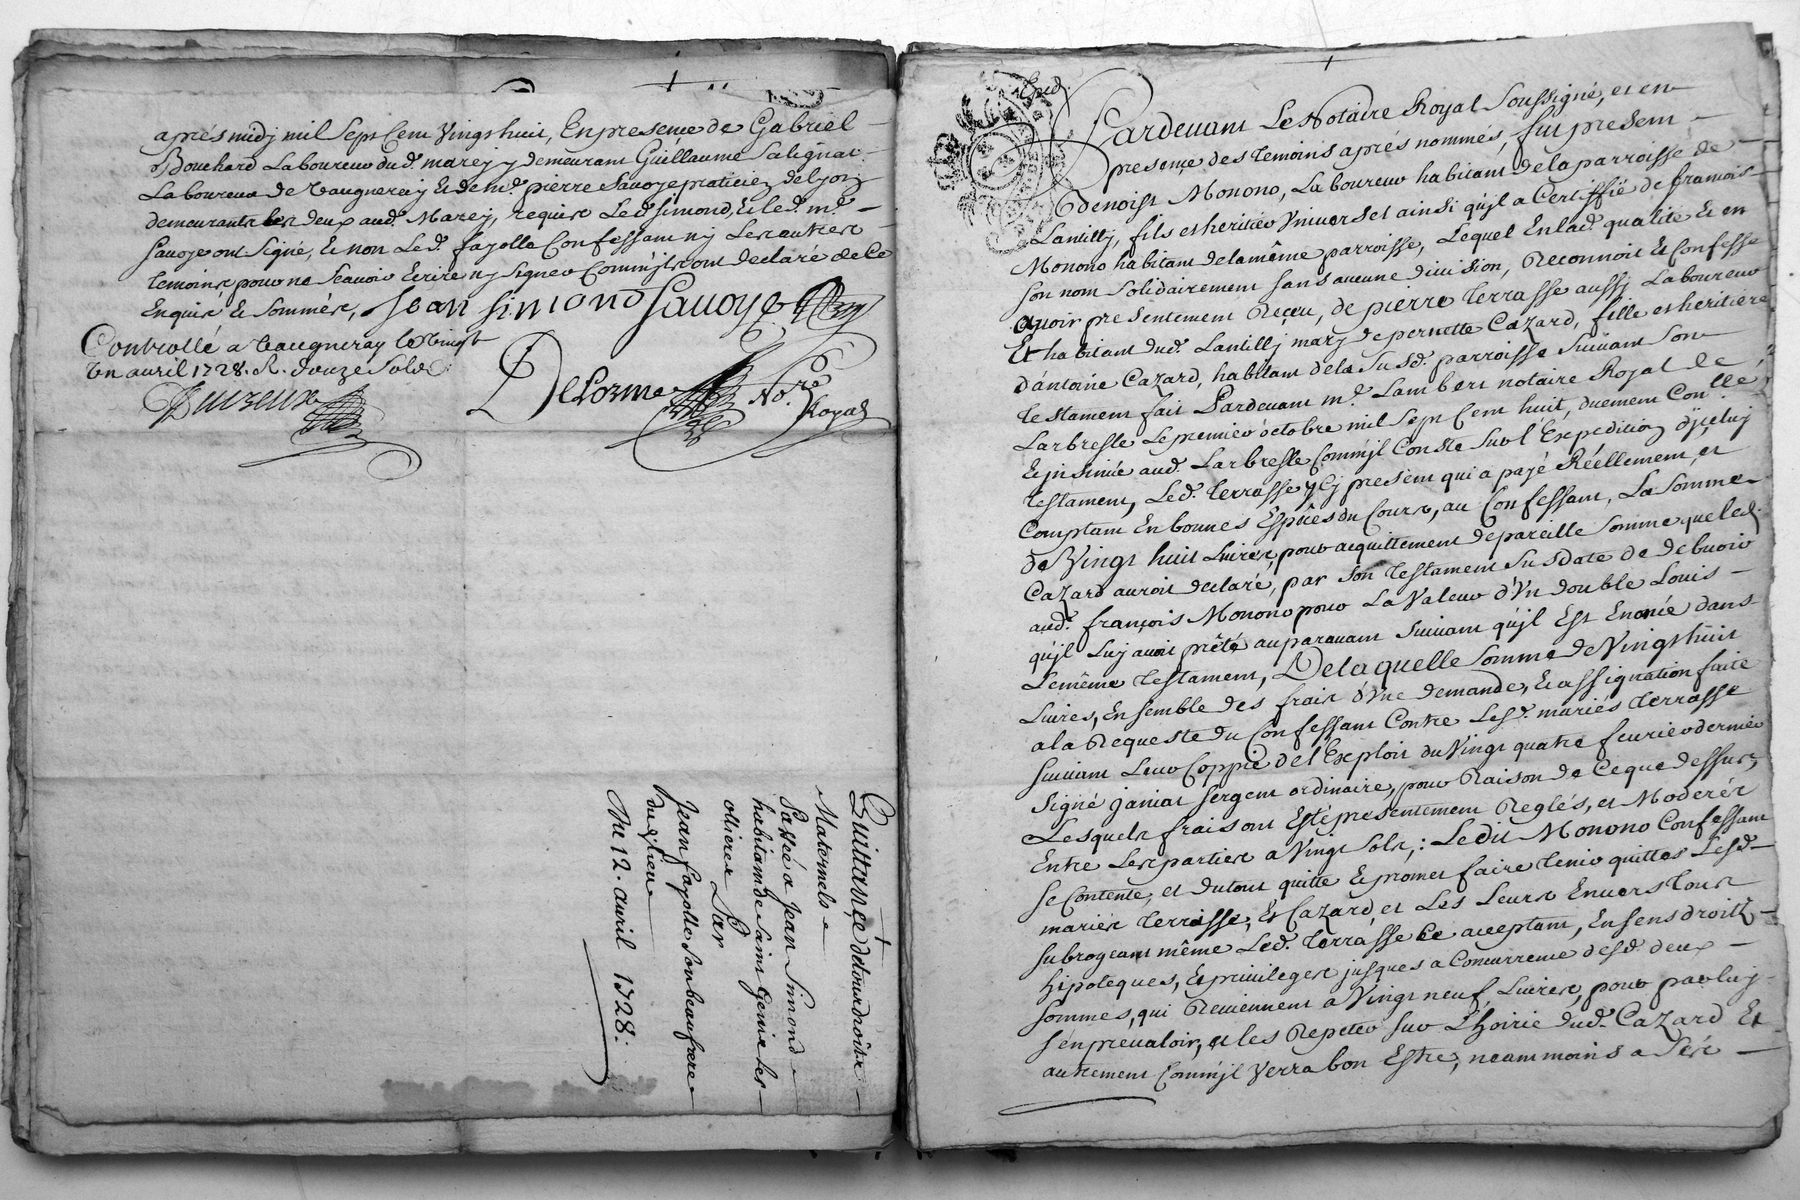 après midy mil sept cent vingt huit, En presençe de Gabriel
Bouchard Laboureur dud. marcy y demeurant Guillaume Salignat
Laboureur de vaugneray & de me. pierre Savoye praticien de Lyon
demeurants les deux aud. Marcy, requise Led. Simond, & led. me.
Savoye ont signé, & non Led. fayolle Confessant ny Les autres
temoins pour ne sçavoir Ecrire ny signer Comm'jls ont declaré de ce
Enquis & sommés,
Jean simond Savoye
Controllé a Vaugneray le vingt
un avril 1728. R. douze sols
Delorme No.re Royal
Quittançe de tous droits
Maternels
Passée a Jean Simond
habitant de Saint Genis les
ollieres Par
Jean fayolle son beaufrere
du dt. lieu
Du 12. avril 1728.
Exped.
Pardevant Le Notaire Royal Soussigné, et en
presençe des temoins aprés nommés, fut present
Benoist Monono, Laboureur habitant de la parroisse de
Lantilly, fils et heritier Vniversel ainsi qu'jl a Certiffié de francois
Monono habitant de la même parroisse, Lequel En lad. qualité & en
son nom solidairement sans aucune division, Reconnoit & Confesse
avoir presentement Reçeu, de pierre Terrasse aussy Laboureur
Et habitant dud. Lantilly mary de pernette Cazard, fille et heritiere
d'antoine Cazard, habitant de la susd. parroisse suivant son
testament fait Pardevant me. Lambert notaire Royal de
Larbresle Le premier octobre mil sept cent huit, duement Con.llé
& jnsinüé aud. Larbresle Comm'jl Conste sur l'Expedition d'jçeluy
testament, Led. Terrasse y Cy present qui a payé Réellement et
Comptant En bonnes Espêçes du Cours, au Confessant, La somme
de Vingt huit Livres, pour acquittement de pareille somme que led.
Cazard auroit declaré, par son testament susdate de debvoir
aud. françois Monono pour La Valeur d'Vn double Louis
qu'jl Luy avoit prêté auparavant suivant qu'jl Est Enonçé dans
Le même testament, De laquelle somme de Vingt huit
Livres, Ensemble des frais d'Vne demande, & assignation faite
a la Requeste du Confessant Contre Lesd. mariés Terrasse
suivant Leur Coppie de l'Exploit du Vingt quatre fevrier dernier
signé janiat sergent ordinaire, pour Raison de Ce que dessus,
Lesquels frais ont Esté presentement Reglés, et Moderés
Entre Les parties a Vingt sols, ; Le dit Monono Confessant
se Contente, et du tout quitte & promet faire tenir quittes Lesd.
mariés Terrasse, Et Cazard, et Les Leurs Envers tous
subrogeant même Led. Terrasse Ce acceptant, En ses droits
hipoteques, & privileges jusques a Concurrence desd. deux
sommes, qui Reviennent a Vingt neuf Livres, pour par luy
s'en prevaloir, et les Repeter sur L'hoirie dud. Cazard Et
autrement Comm'jl Verra bon Estre, neammoins a ses